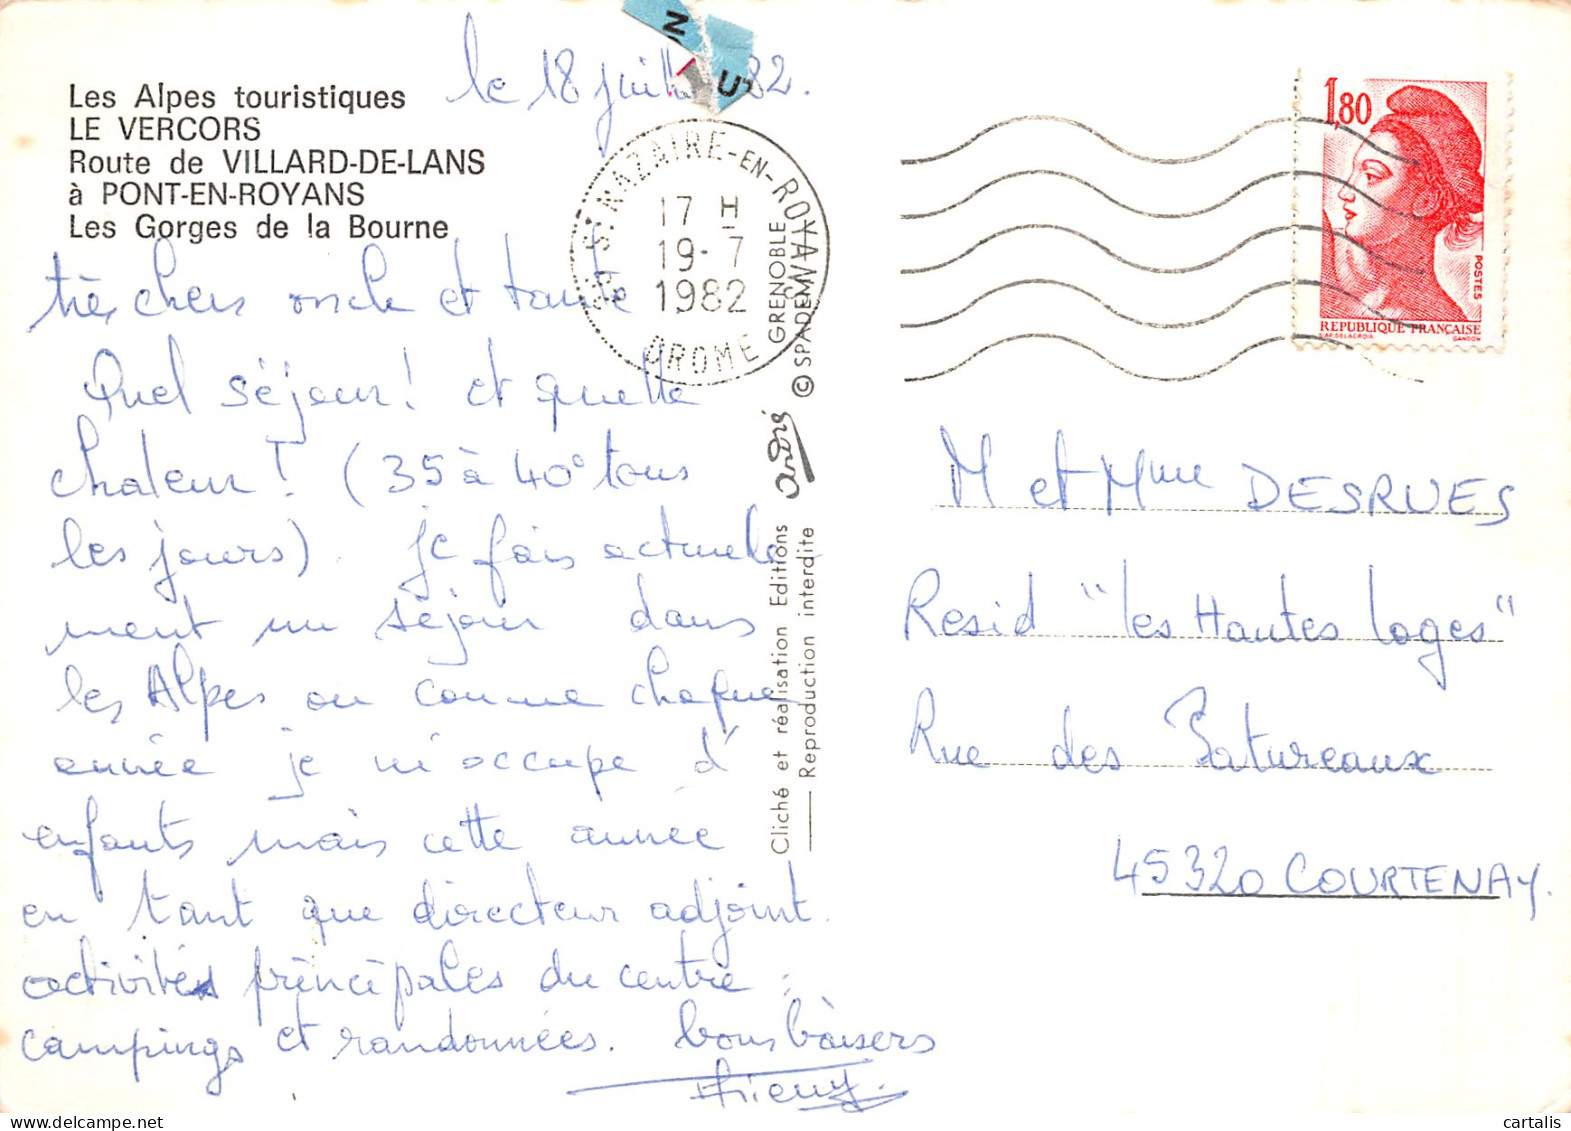 le 18 juill 82.
N
U
Les Alpes touristiques
LE VERCORS
Route de VILLARD-DE-LANS
à PONT-EN-ROYANS
Les Gorges de la Bourne
très chers oncle et tante
Quel séjour! et quelle
chaleur! (35 à 40° tous
les jours). je fais actuelle-
ment un séjour dans
les Alpes ou comme chaque
année je m'occupe d'
enfants mais cette année
en tant que directeur adjoint.
activités principales du centre:
campings et randonnées. bons baisers
ST NAZAIRE-EN-ROYANS
17 H
19-7
1982
DROME
Cliché et réalisation Editions André © SPADEM GRENOBLE
Reproduction interdite
1,80
POSTES
REPUBLIQUE FRANÇAISE
D'AP. DELACROIX GANDON
M et Mme DESRUES
Resid "les Hautes loges"
Rue des Patureaux
45320 COURTENAY.
cartalis